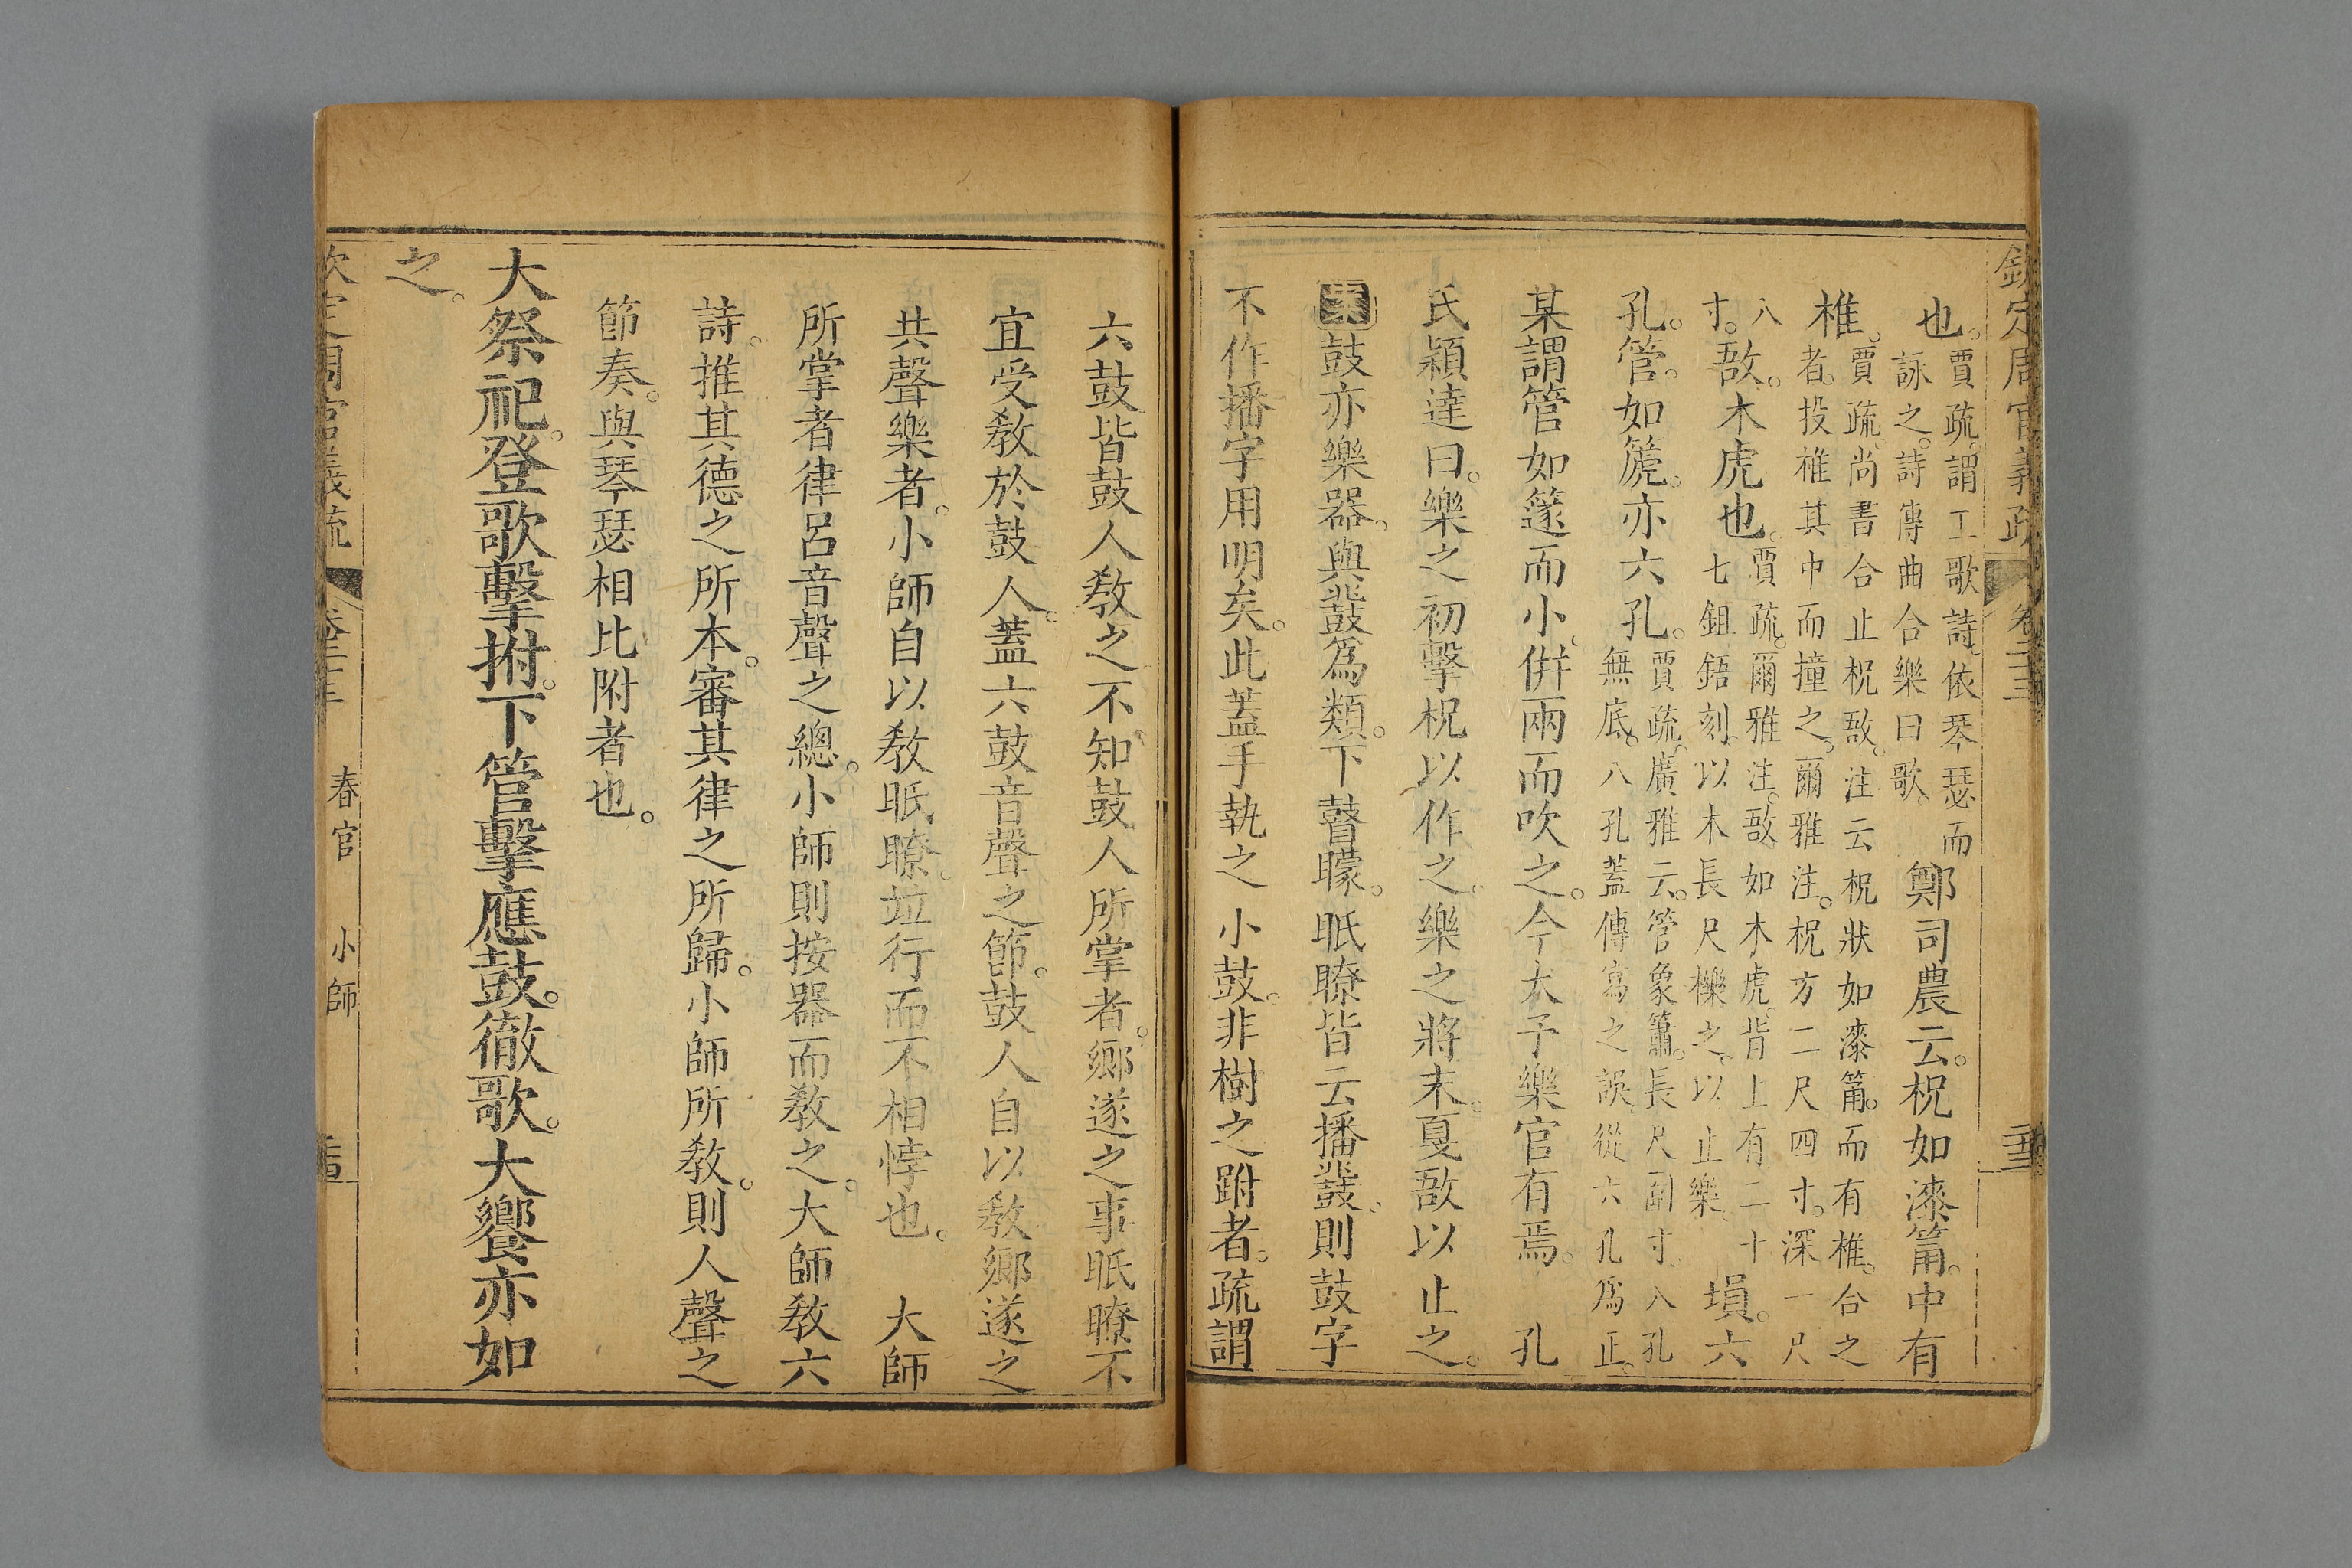 欽定周官義疏 卷二十三
也。賈疏。謂工歌詩。依琴瑟而詠之。詩傳曲合樂曰歌。 鄭司農云。柷如漆筩。中有
椎。賈疏。尚書合止柷敔。注云柷狀如漆筩。而有椎。合之者。投椎其中而撞之。爾雅注。柷方二尺四寸。深一尺
八寸。敔。木虎也。賈疏。爾雅注。敔如木虎。背上有二十七鉏鋙刻。以木長尺櫟之。以止樂。 塤。六
孔。管。如篪。亦六孔。賈疏。廣雅云。管象簫。長尺圍寸。八孔無底。八孔蓋傳寫之誤。從六孔爲正。
某謂管如篴而小。倂兩而吹之。今大予樂官有焉。 孔
氏穎達曰。樂之初擊柷以作之。樂之將末。戛敔以止之。
案鼓亦樂器。與鼗爲類。下瞽矇。眂瞭皆云播鼗。則鼓字
不作播字用明矣。此蓋手執之小鼓。非樹之跗者。疏謂
六鼓皆鼓人敎之不知鼓人所掌者。鄉遂之事眂瞭不
宜受敎於鼓人。蓋六鼓音聲之節。鼓人自以敎鄉遂之
共聲樂者。小師自以敎眂瞭。竝行而不相悖也。 大師
所掌者律呂音聲之總。小師則按器而敎之。大師敎六
詩。推其德之所本。審其律之所歸。小師所敎。則人聲之
節奏。與琴瑟相比附者也。
大祭祀。登歌擊拊。下管擊應鼓。徹歌。大饗亦如
之。
欽定周官義疏 卷二十三 春官 小師